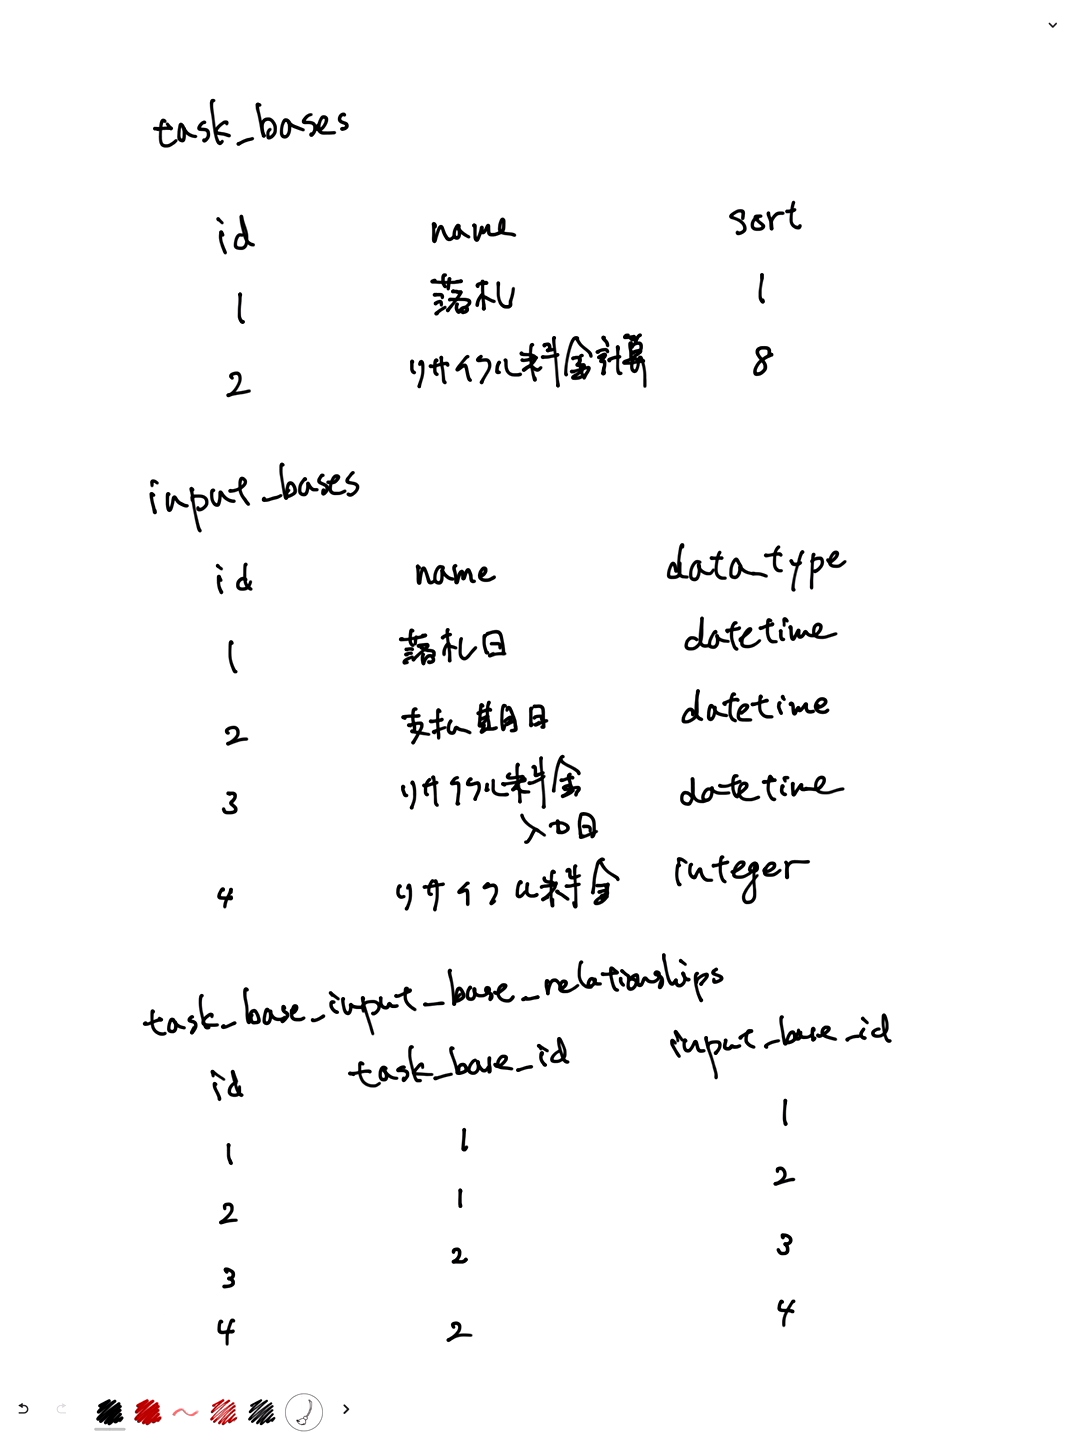 task_bases
id name sort
1 落札 1
2 リサイクル料金計算 8
input_bases
id name data_type
1 落札日 datetime
2 支払期日 datetime
3 リサイクル料金 datetime
入口日
4 リサイクル料金 integer
task_base_input_base_relationships
id task_base_id input_base_id
1 1 1
2 1 2
3 2 3
4 2 4